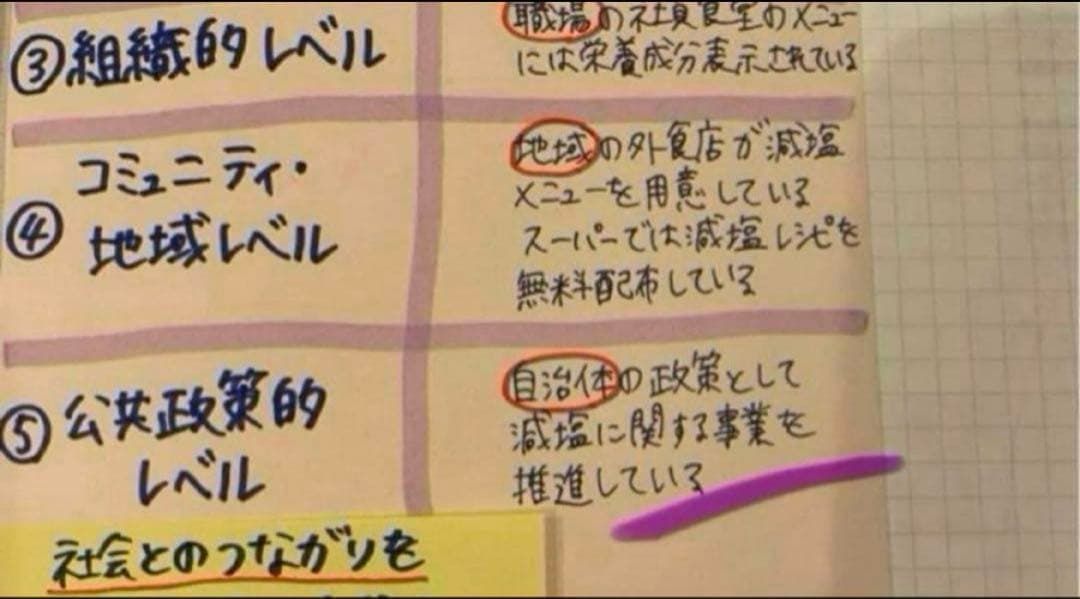 ③組織的レベル
職場の社員食堂のメニュー
には栄養成分表示されている
④
コミュニティ・
地域レベル
地域の外食店が減塩
メニューを用意している
スーパーでは減塩レシピを
無料配布している
⑤
公共政策的
レベル
自治体の政策として
減塩に関する事業を
推進している
社会とのつながりを